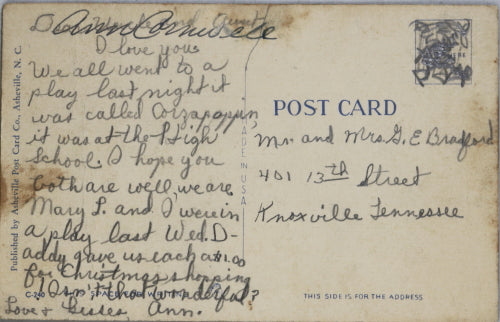 Ann Cornwell
Dear and Aunt
I love you.
We all went to a
play last night it
was called
it was at the High
School. I hope you
both are well, we are.
Mary L. and I were in
a play last Wed. D-
addy gave us each a $1.00
for Christmas shopping
Isn't that wonderful?
Love & Kisses Ann.
Published by Asheville Post Card Co., Asheville, N. C.
MADE IN U.S.A.
POST CARD
Mr. and Mrs. G. E. Bradford
401 13th Street
Knoxville Tennessee
THIS SIDE IS FOR THE ADDRESS
SPACE FOR WRITING